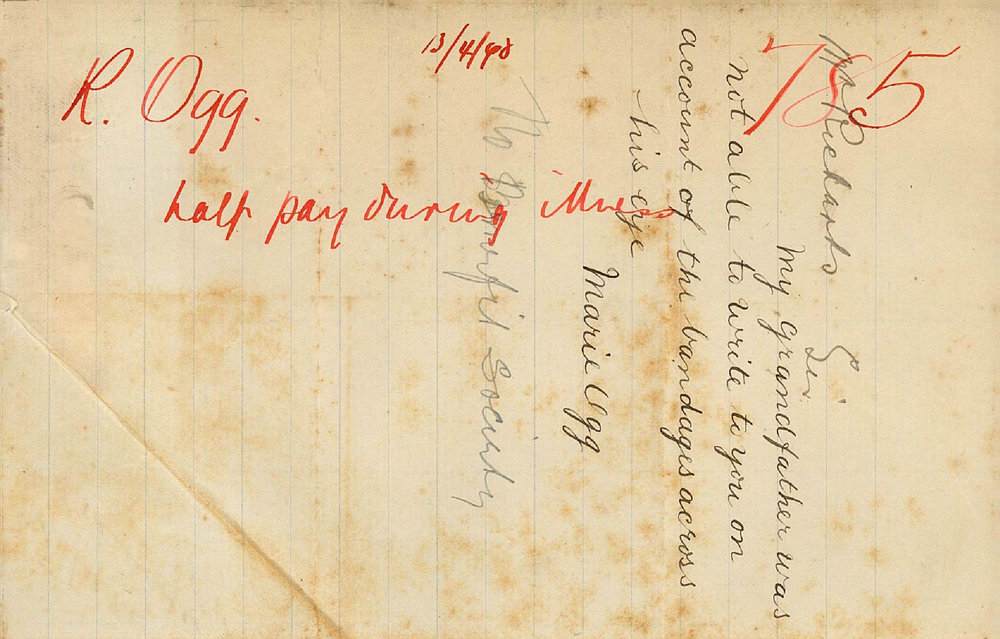 13/4/98
785
R. Ogg.
half pay during illness
Mr Richards
Sir.
My Grandfather was
not able to write to you on
account of the bandages across
his eye
Marie Ogg
No Benefit Society